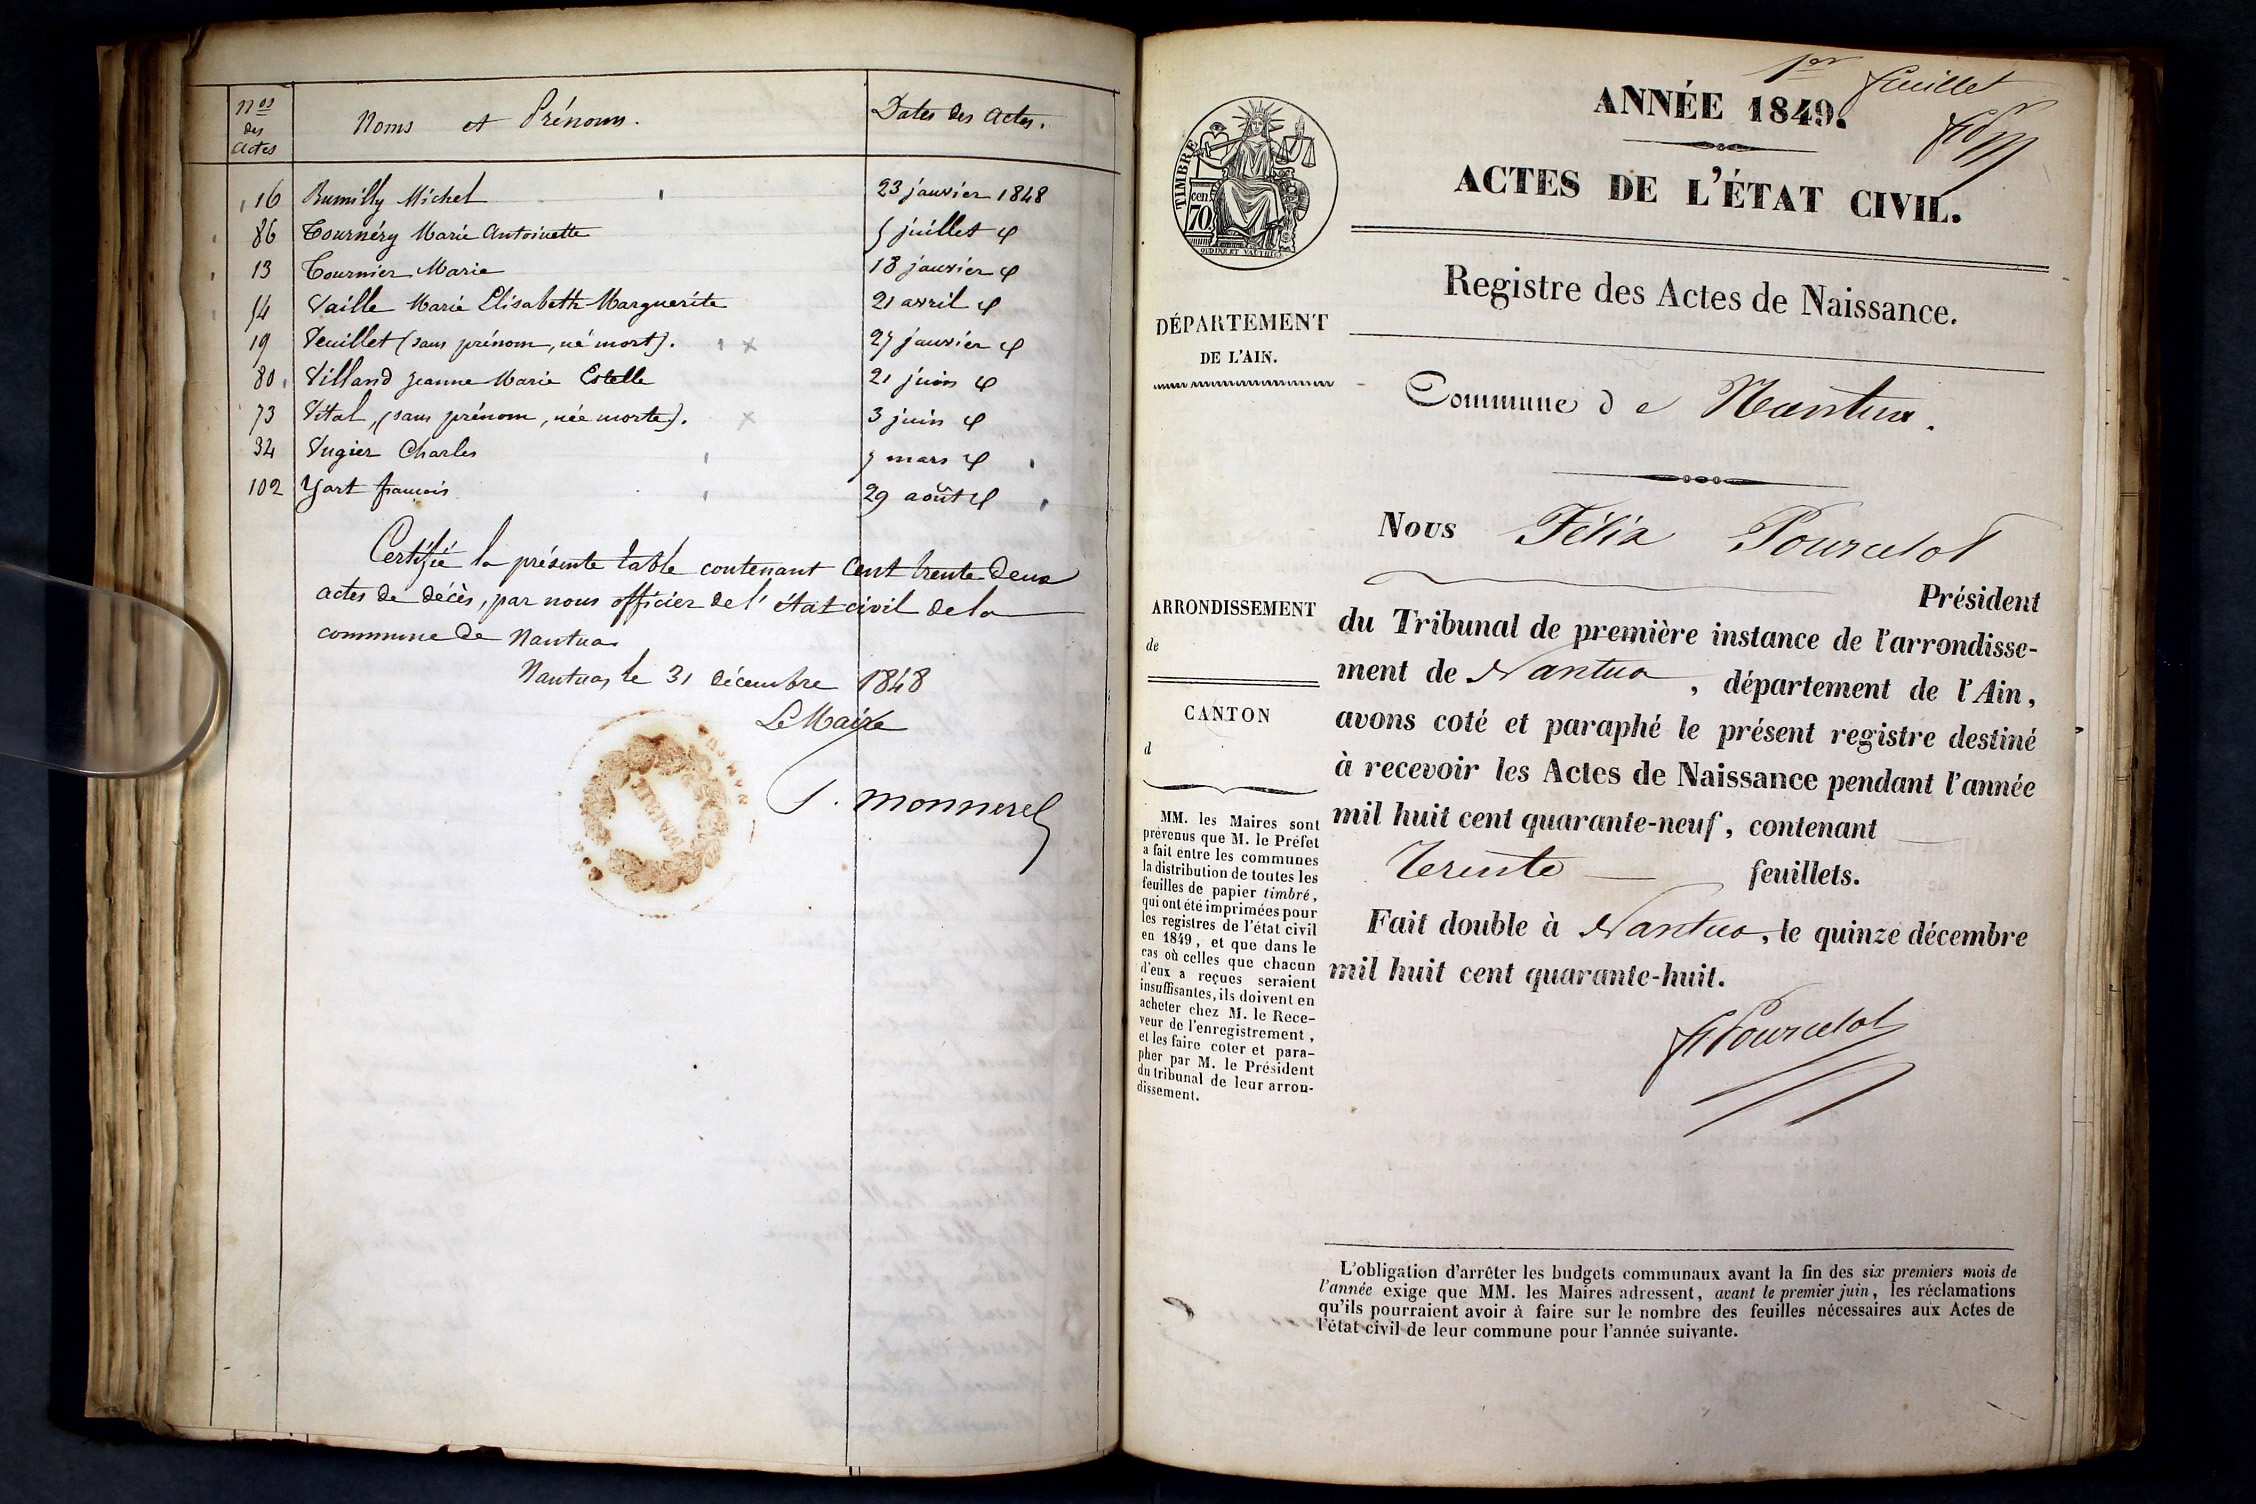 Nos des Actes
Noms et Prénoms.
Dates des Actes.
16 Rumilly Michel 23 janvier 1848
86 Tournéry Marie Antoinette 5 juillet φ
13 Tournier Marie 18 janvier φ
54 Vaille Marie Elisabeth Marguerite 21 avril φ
19 Veuillet (sans prénom, né mort). 27 janvier φ
80 Villand Jeanne Marie Estelle 21 juin φ
73 Vital, (sans prénom, née morte). 3 juin φ
34 Vugier Charles 7 mars φ
102 Yart françois 29 août φ
Certifié la présente table contenant Cent trente deux
actes de décès, par nous officier de l'état civil de la
commune de Nantua
Nantua, le 31 décembre 1848
Le Maire
MAIRIE
J. Monneret
1er feuillet
ANNÉE 1849.
ACTES DE L'ÉTAT CIVIL.
TIMBRE
70 cen
Registre des Actes de Naissance.
DÉPARTEMENT
DE L'AIN.
Commune de Nantua.
Nous Félix Pourcelot
Président
ARRONDISSEMENT
de
CANTON
d
du Tribunal de première instance de l'arrondisse-
ment de Nantua, département de l'Ain,
avons coté et paraphé le présent registre destiné
à recevoir les Actes de Naissance pendant l'année
mil huit cent quarante-neuf, contenant
trente feuillets.
Fait double à Nantua, le quinze décembre
mil huit cent quarante-huit.
FPourcelot
MM. les Maires sont
prévenus que M. le Préfet
a fait entre les communes
la distribution de toutes les
feuilles de papier timbré,
qui ont été imprimées pour
les registres de l'état civil
en 1849, et que dans le
cas où celles que chacun
d'eux a reçues seraient
insuffisantes, ils doivent en
acheter chez M. le Rece-
veur de l'enregistrement,
et les faire coter et para-
pher par M. le Président
du tribunal de leur arron-
dissement.
L'obligation d'arrêter les budgets communaux avant la fin des six premiers mois de
l'année exige que MM. les Maires adressent, avant le premier juin, les réclamations
qu'ils pourraient avoir à faire sur le nombre des feuilles nécessaires aux Actes de
l'état civil de leur commune pour l'année suivante.